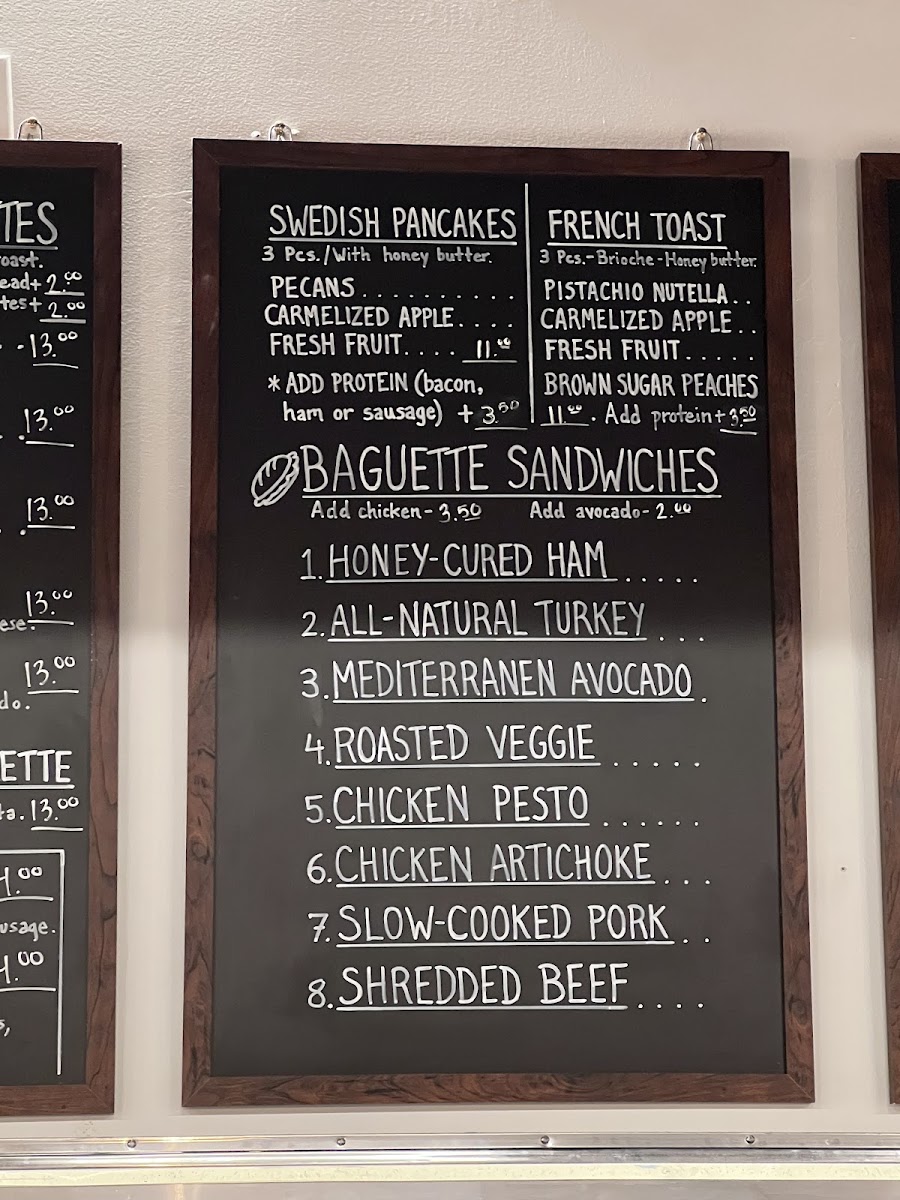 TES
oast.
ead+ 2.00
tes+ 2.00
13.00
13.00
13.00
13.00
ese.
13.00
do.
ETTE
ta. 13.00
4.00
usage.
4.00
SWEDISH PANCAKES
3 Pcs./With honey butter.
PECANS..........
CARMELIZED APPLE....
FRESH FRUIT.... 11.00
* ADD PROTEIN (bacon,
ham or sausage) + 3.50
FRENCH TOAST
3 Pcs.-Brioche-Honey butter.
PISTACHIO NUTELLA..
CARMELIZED APPLE..
FRESH FRUIT.....
BROWN SUGAR PEACHES
11.00. Add protein+3.50
BAGUETTE SANDWICHES
Add chicken-3.50 Add avocado-2.00
1. HONEY-CURED HAM.....
2. ALL-NATURAL TURKEY...
3. MEDITERRANEN AVOCADO.
4. ROASTED VEGGIE.....
5. CHICKEN PESTO......
6. CHICKEN ARTICHOKE...
7. SLOW-COOKED PORK..
8. SHREDDED BEEF....